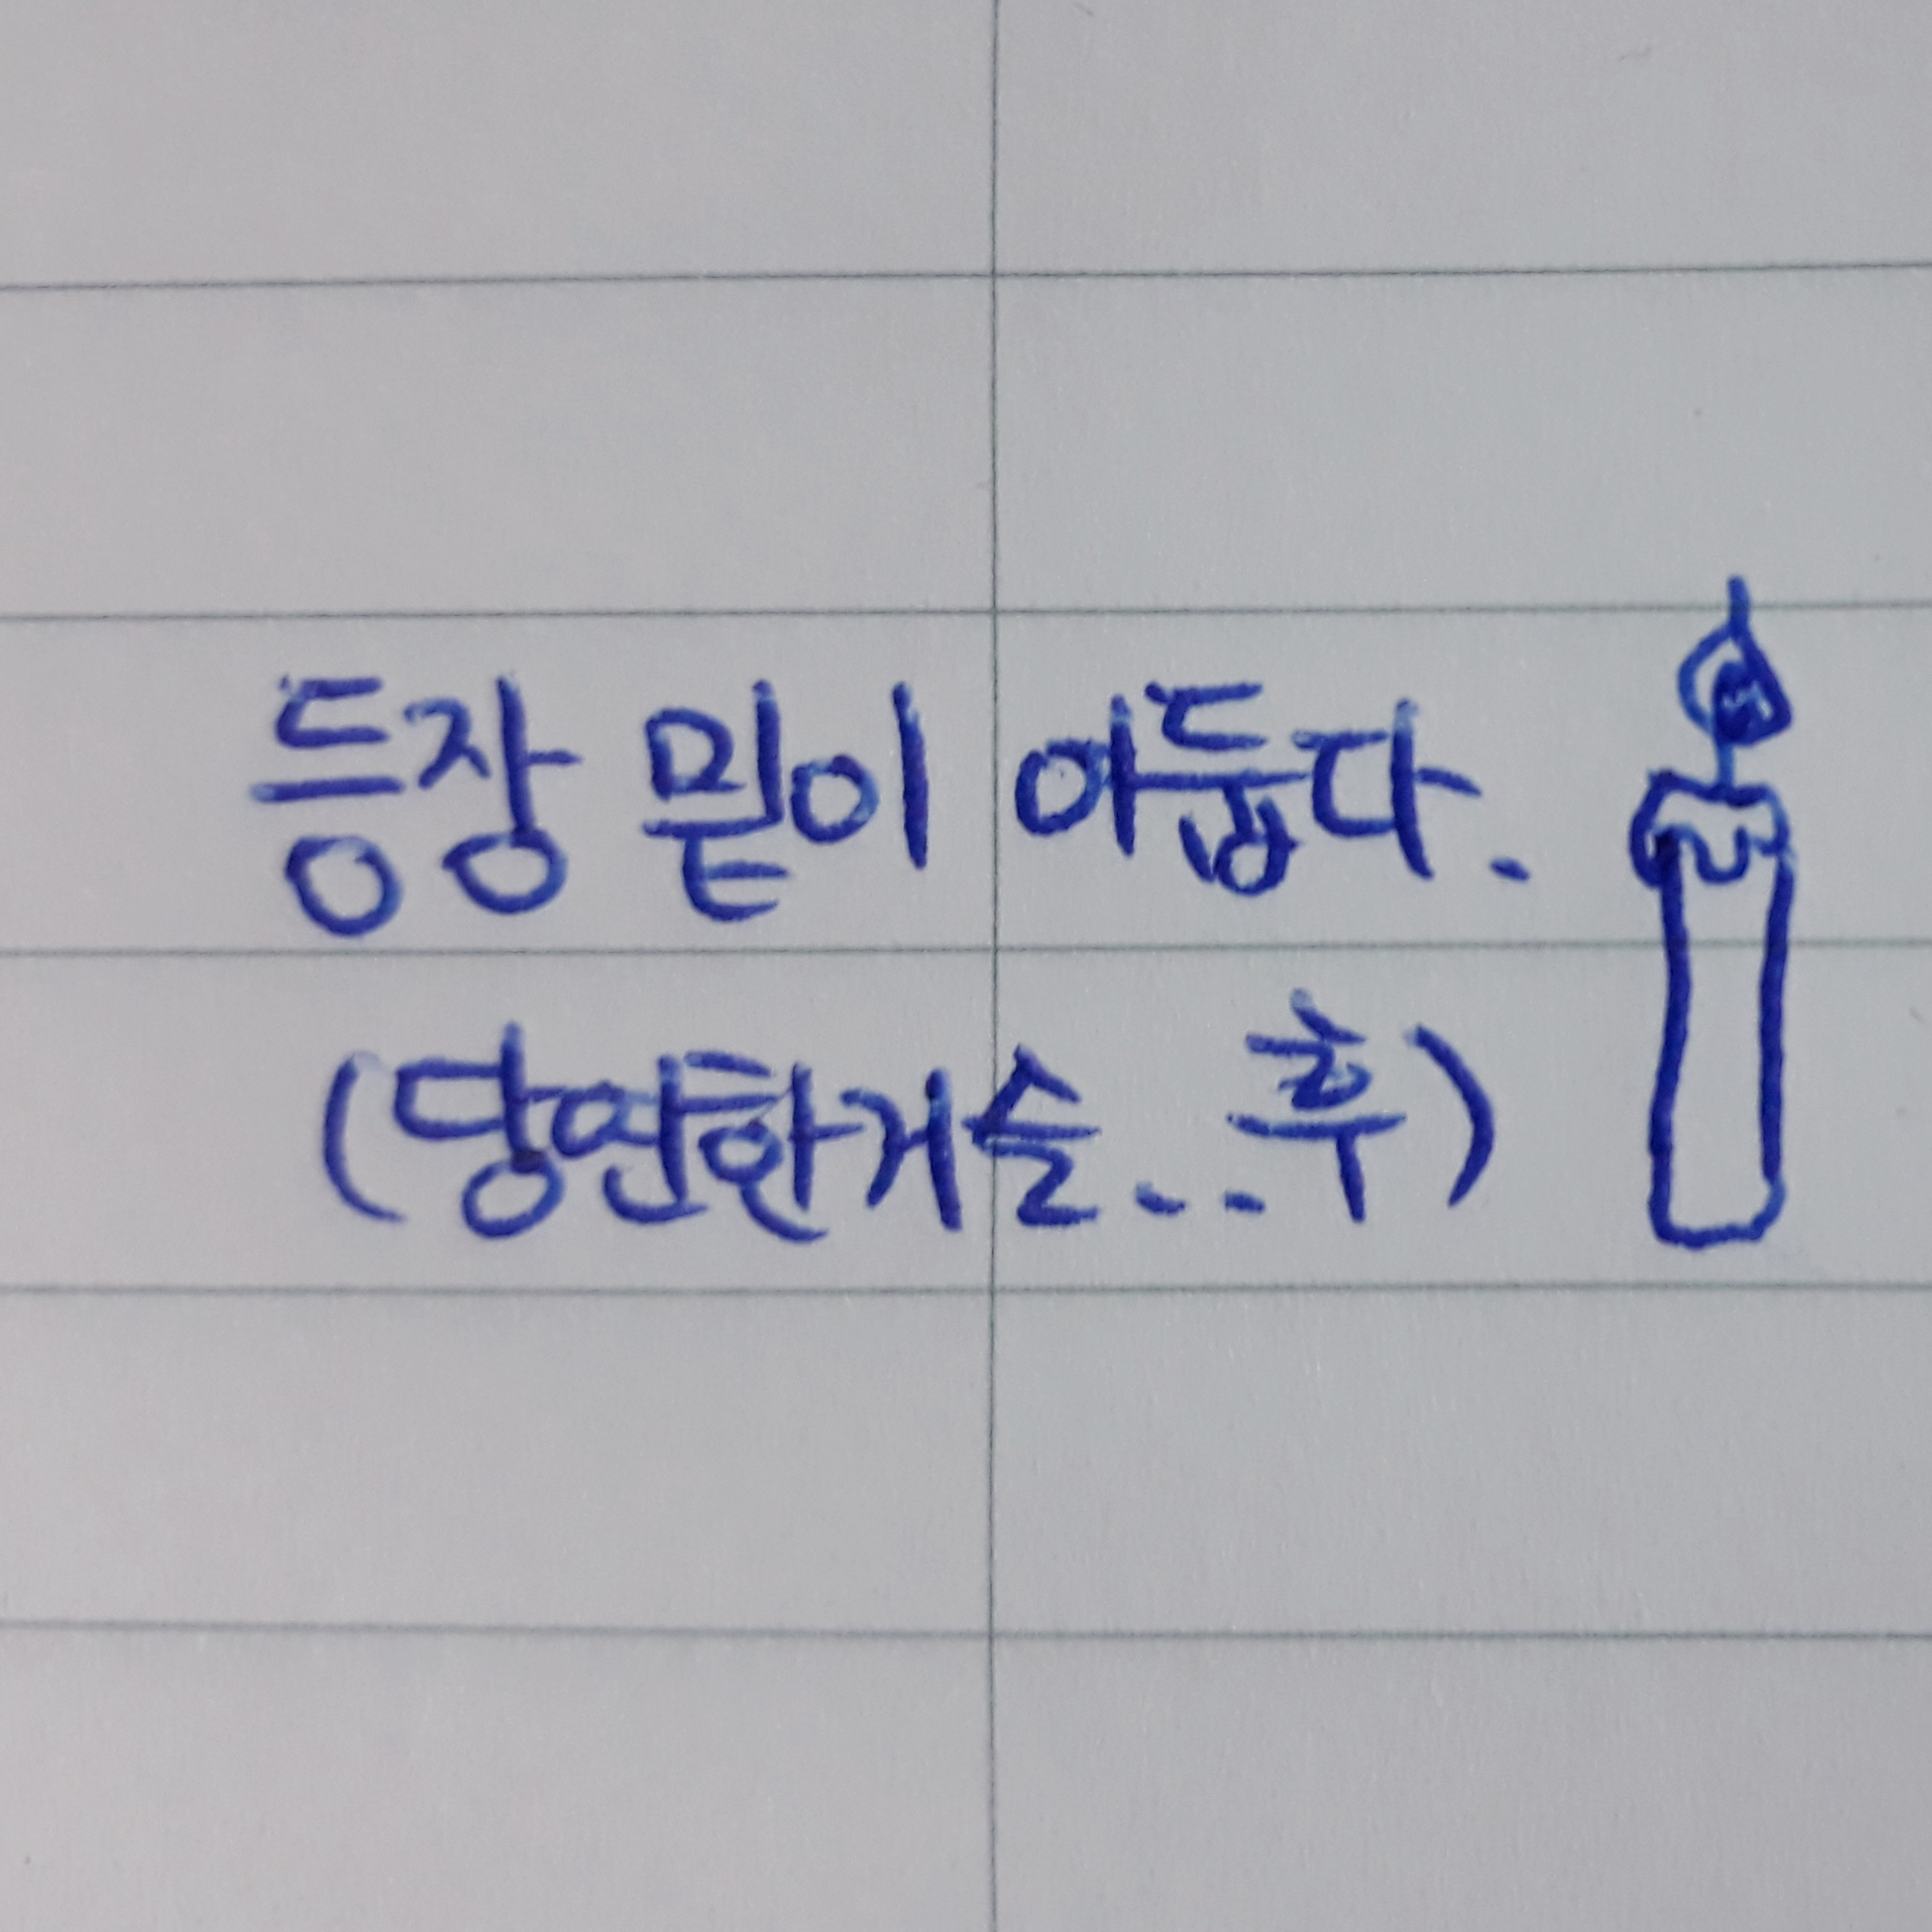 등장 밑이 어둡다.
(당연한거슬..후)